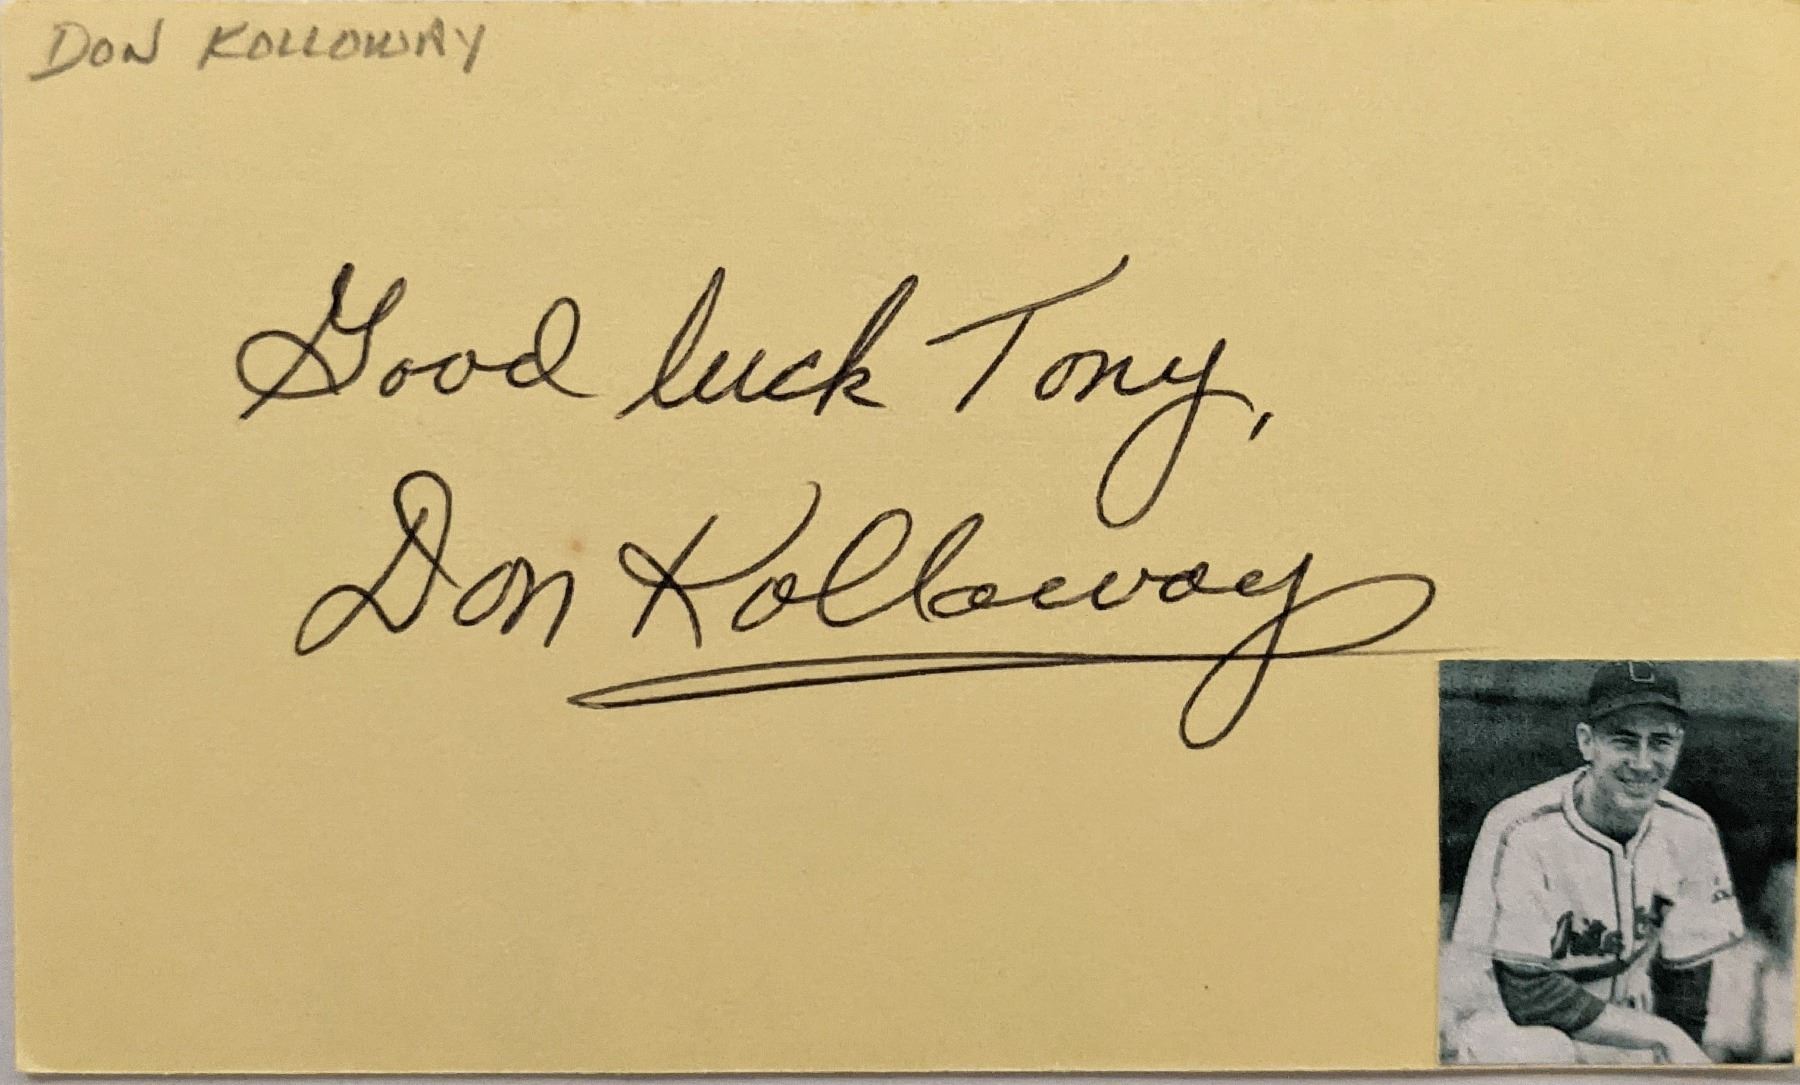 DON KOLLOWAY
Good luck Tony,
Don Kolloway